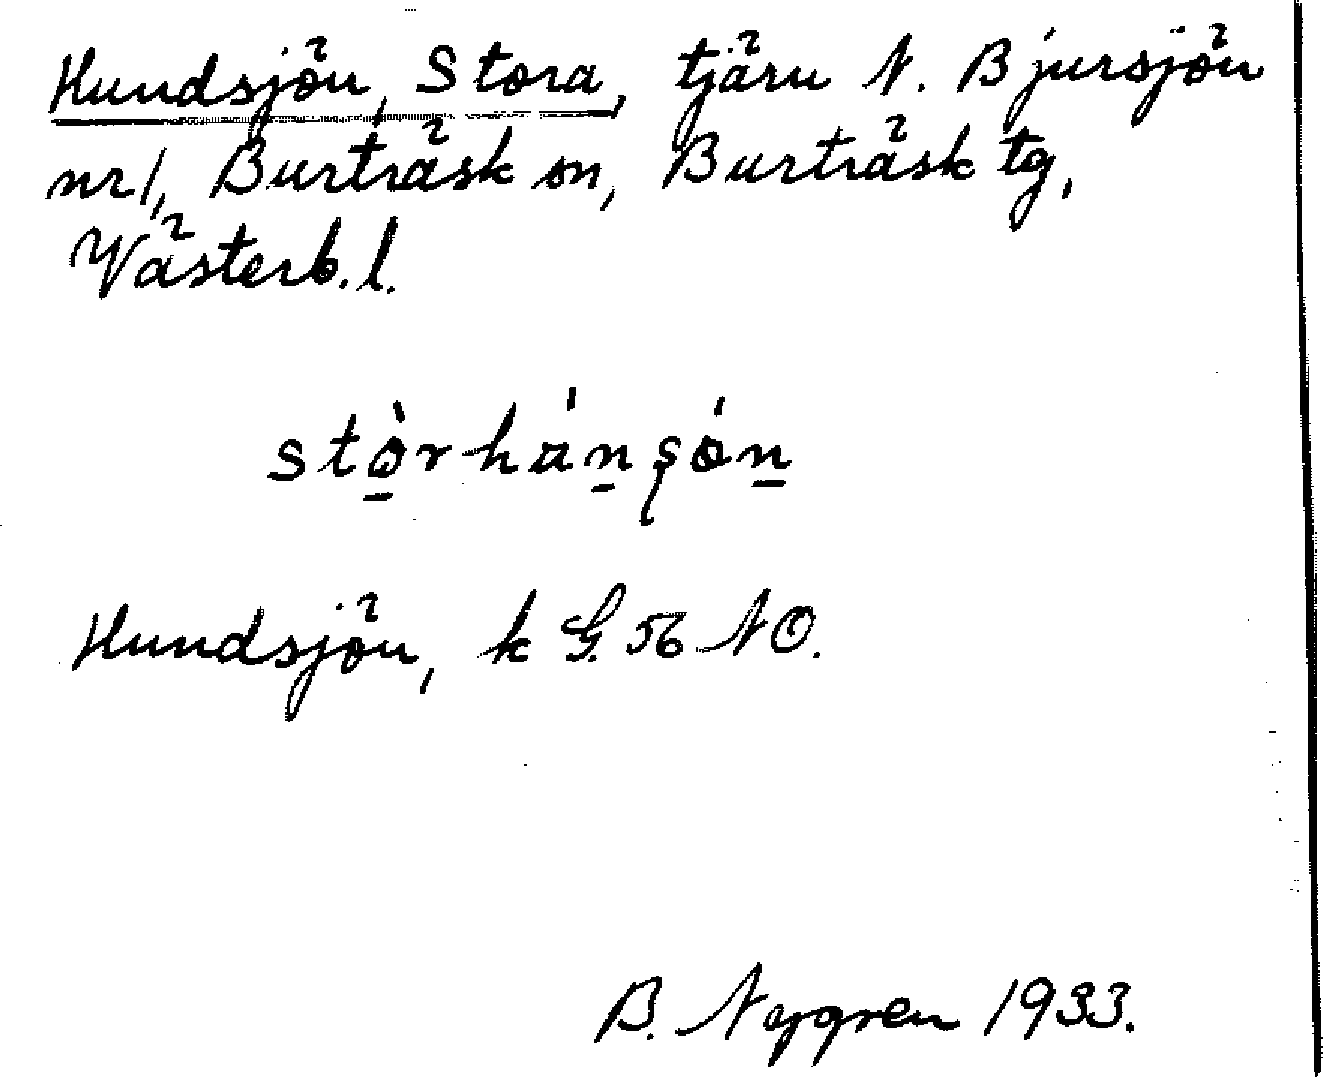 Hundsjön, Stora, tjärn N. Bjursjön
nr 1, Burträsk sn, Burträsk tg,
Västerb. l.
Hundsjön, k G. 56 NO.
B. Nygren 1933.